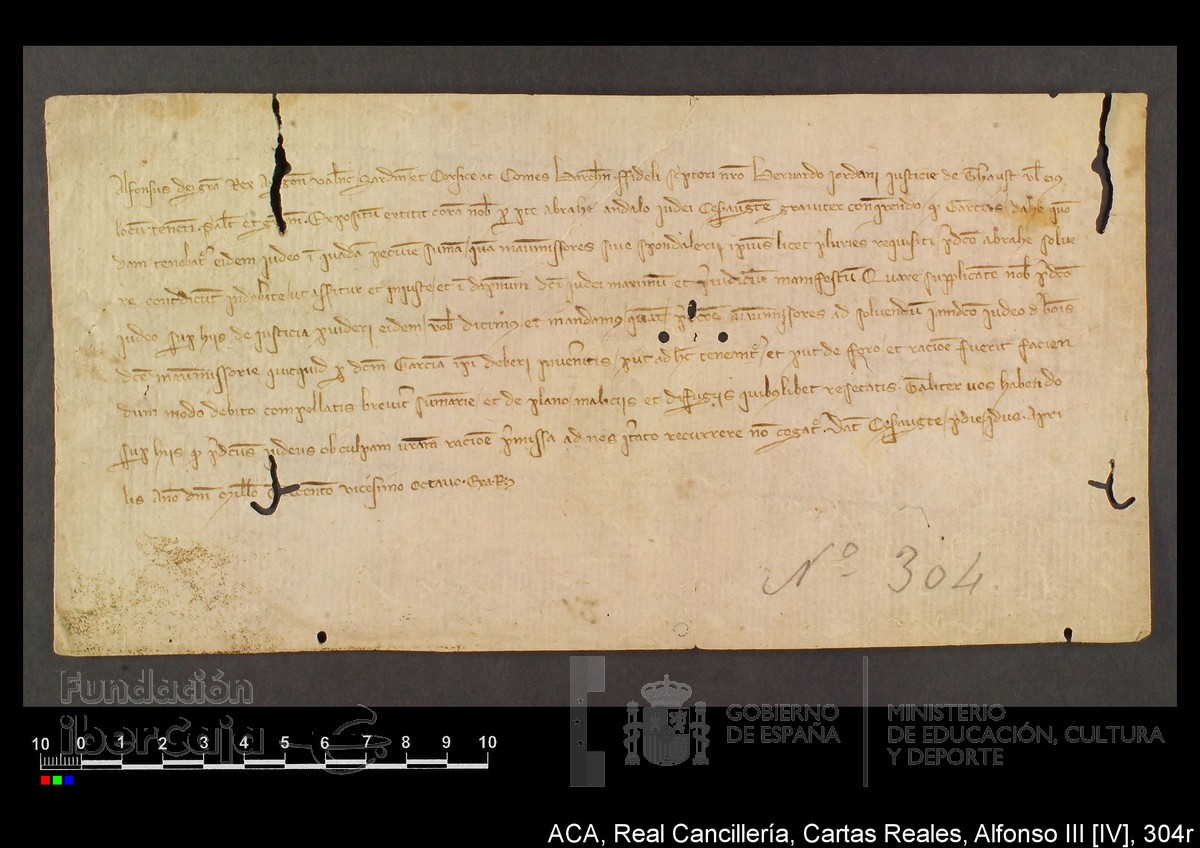 Alfonsus dei gra Rex Aragon Valenc Sardin et Corsice ac Comes Barchn ffideli scriptori nro Bernardo iordani justicie de Thaust vl eius
locum tenenti. Salt et gram. Expositum extitit coram nob p pte abrahe andalo iudei Cesarauguste graviter conquerendo q Garcias quon
dam tenebat eidem judeo i quadam peccunie summa quam manumissores sive spondalerii ipius licet pluries requisiti pdco abrahe solve
re contdicunt indebite ut asseritur et iniuste et i dapnum dci iudei maximum et preiudicium manifestum Quare supplicato nob p dco
iudeo sup hiis de justicia pvideri eidem vob dicimus et mandamus quatenus pdcos manumissores ad solvendum iamdco iudeo de bonis
dce manumissorie quicquid p dcm Garciam ipi deberi inveneritis put ad hec teneantur et put de foro et racione fuerit facien
dum modo debito compellatis breviter summarie et de plano maliciis et diffugiis quibuslibet resecatis. Taliter vos habendo
sup hiis q pdcus iudeus ob culpam vram racione pmissa ad nos iterato recurrere no cogatur. Dat Cesarauguste pridie idus Apri
lis Anno dni Millo CCC vicesimo octavo. Exa. R
Nº 304
Fundación
iberCaja
10 0 1 2 3 4 5 6 7 8 9 10
GOBIERNO
DE ESPAÑA
MINISTERIO
DE EDUCACIÓN, CULTURA
Y DEPORTE
ACA, Real Cancillería, Cartas Reales, Alfonso III [IV], 304r